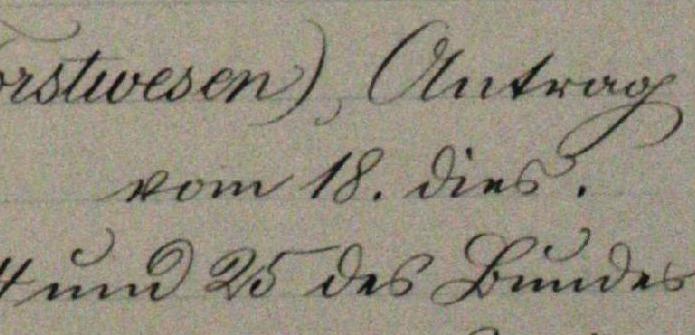 orstwesen), Antrag
vom 18. dies.
4 und 25 des Bundes